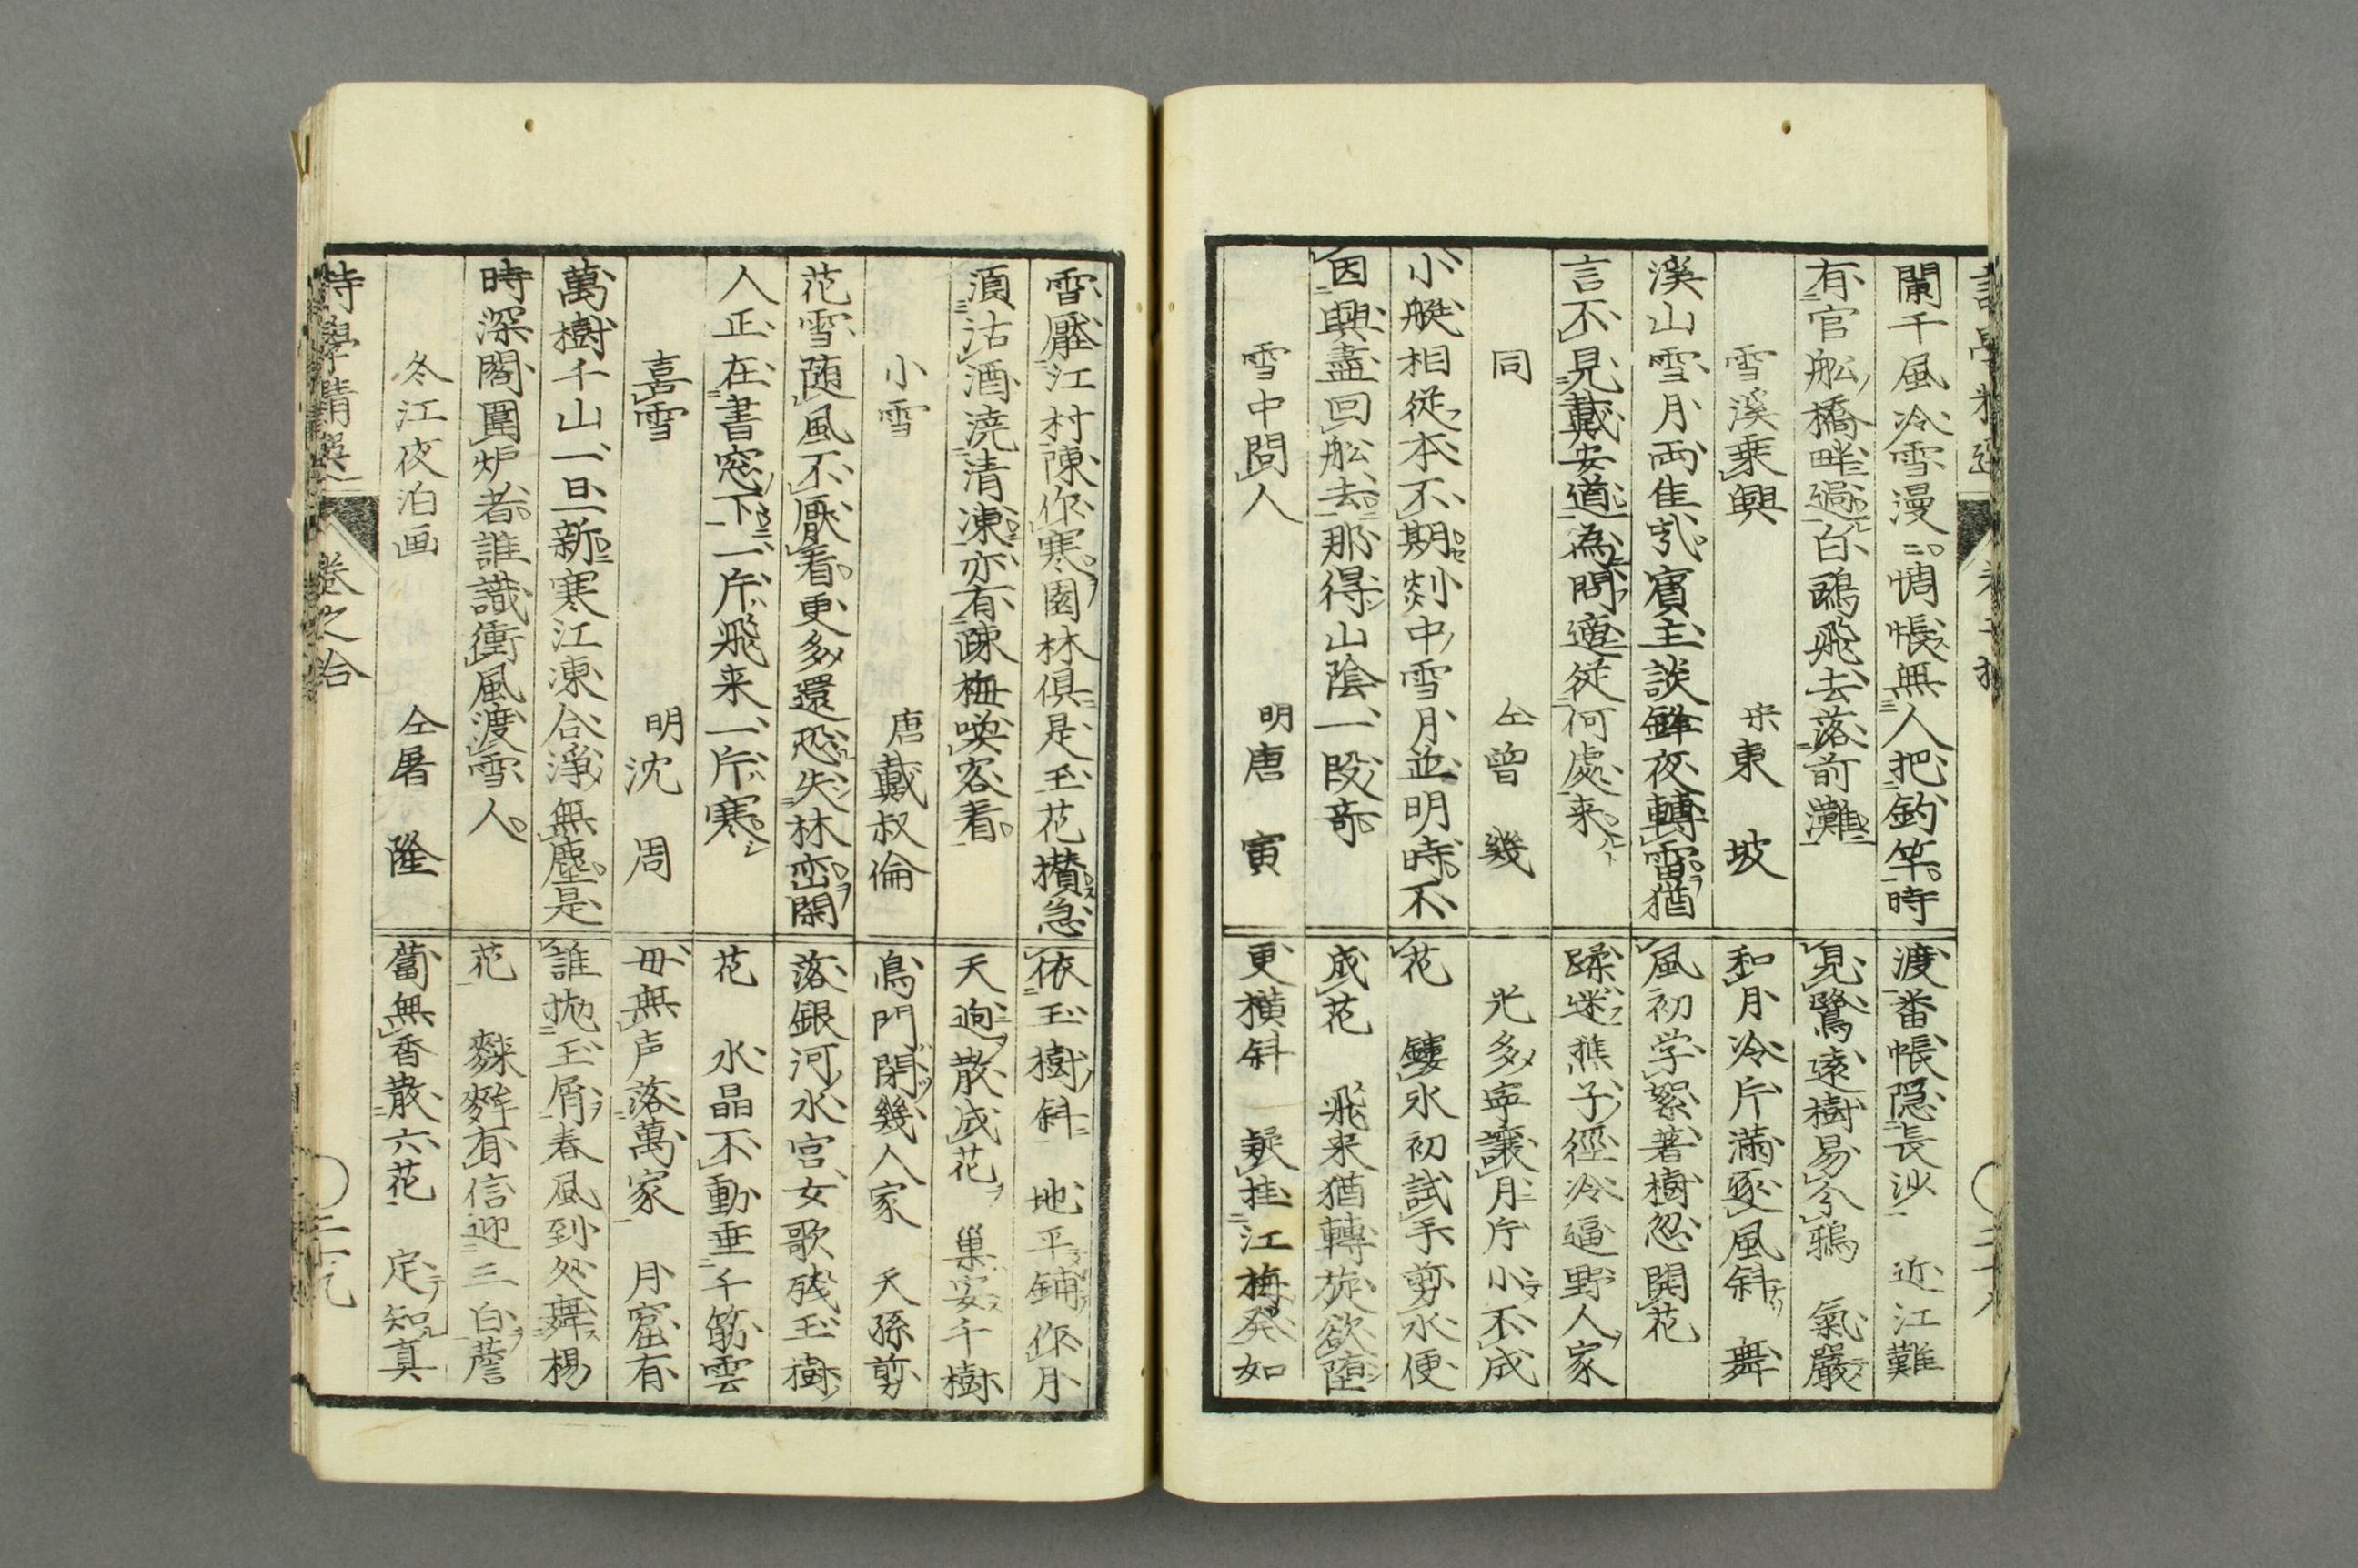 闌干風冷雪漫〻惆悵無人把釣竿時
有官舩橋畔過白鷗飛去落前灘
雪溪乗興　宋東坡
溪山雪月両佳哉賓主談鋒夜轉雷猶
言不見戴安道為問適従何處来
同　仝曽幾
小艇相従本不期剡中雪月並明時不
因興盡回舩去那得山陰一段竒
雪中問人　明唐寅
渡番帳隠長沙　近江難
見鷺遠樹易分鴉　氣嚴
和月冷片満逐風斜　舞
風初学絮著樹忽開花
蹊迷樵子徑冷逼野人家
光多寧譲月片小不成
花　鏤氷初試手剪水便
成花　飛来猶轉旋欲堕
更横斜　疑挂江梅発如
雪壓江村陳作寒園林倶是玉花攅急
湏沽酒澆清凍亦有疎梅喚客看
小雪　唐戴叔倫
花雪随風不厭看更多還恐失林峦閑
人正在書窓下一片飛来一片寒
喜雪　明沈周
萬樹千山一旦新寒江凍合浄無塵是
時深閣圍炉者誰識衝風渡雪人
冬江夜泊画　仝屠隆
依玉樹斜　地平鋪作月
天逈散成花　巣安千樹
鳥門閉幾人家　天孫剪
落銀河水宮女歌残玉樹
花　水晶不動垂千筯雲
母無声落萬家　月窟有
誰抛玉屑春風到処舞楊
花　麰麰有信迎三白薝
蔔無香散六花　定知真
詩學精選　巻之冶　二十九